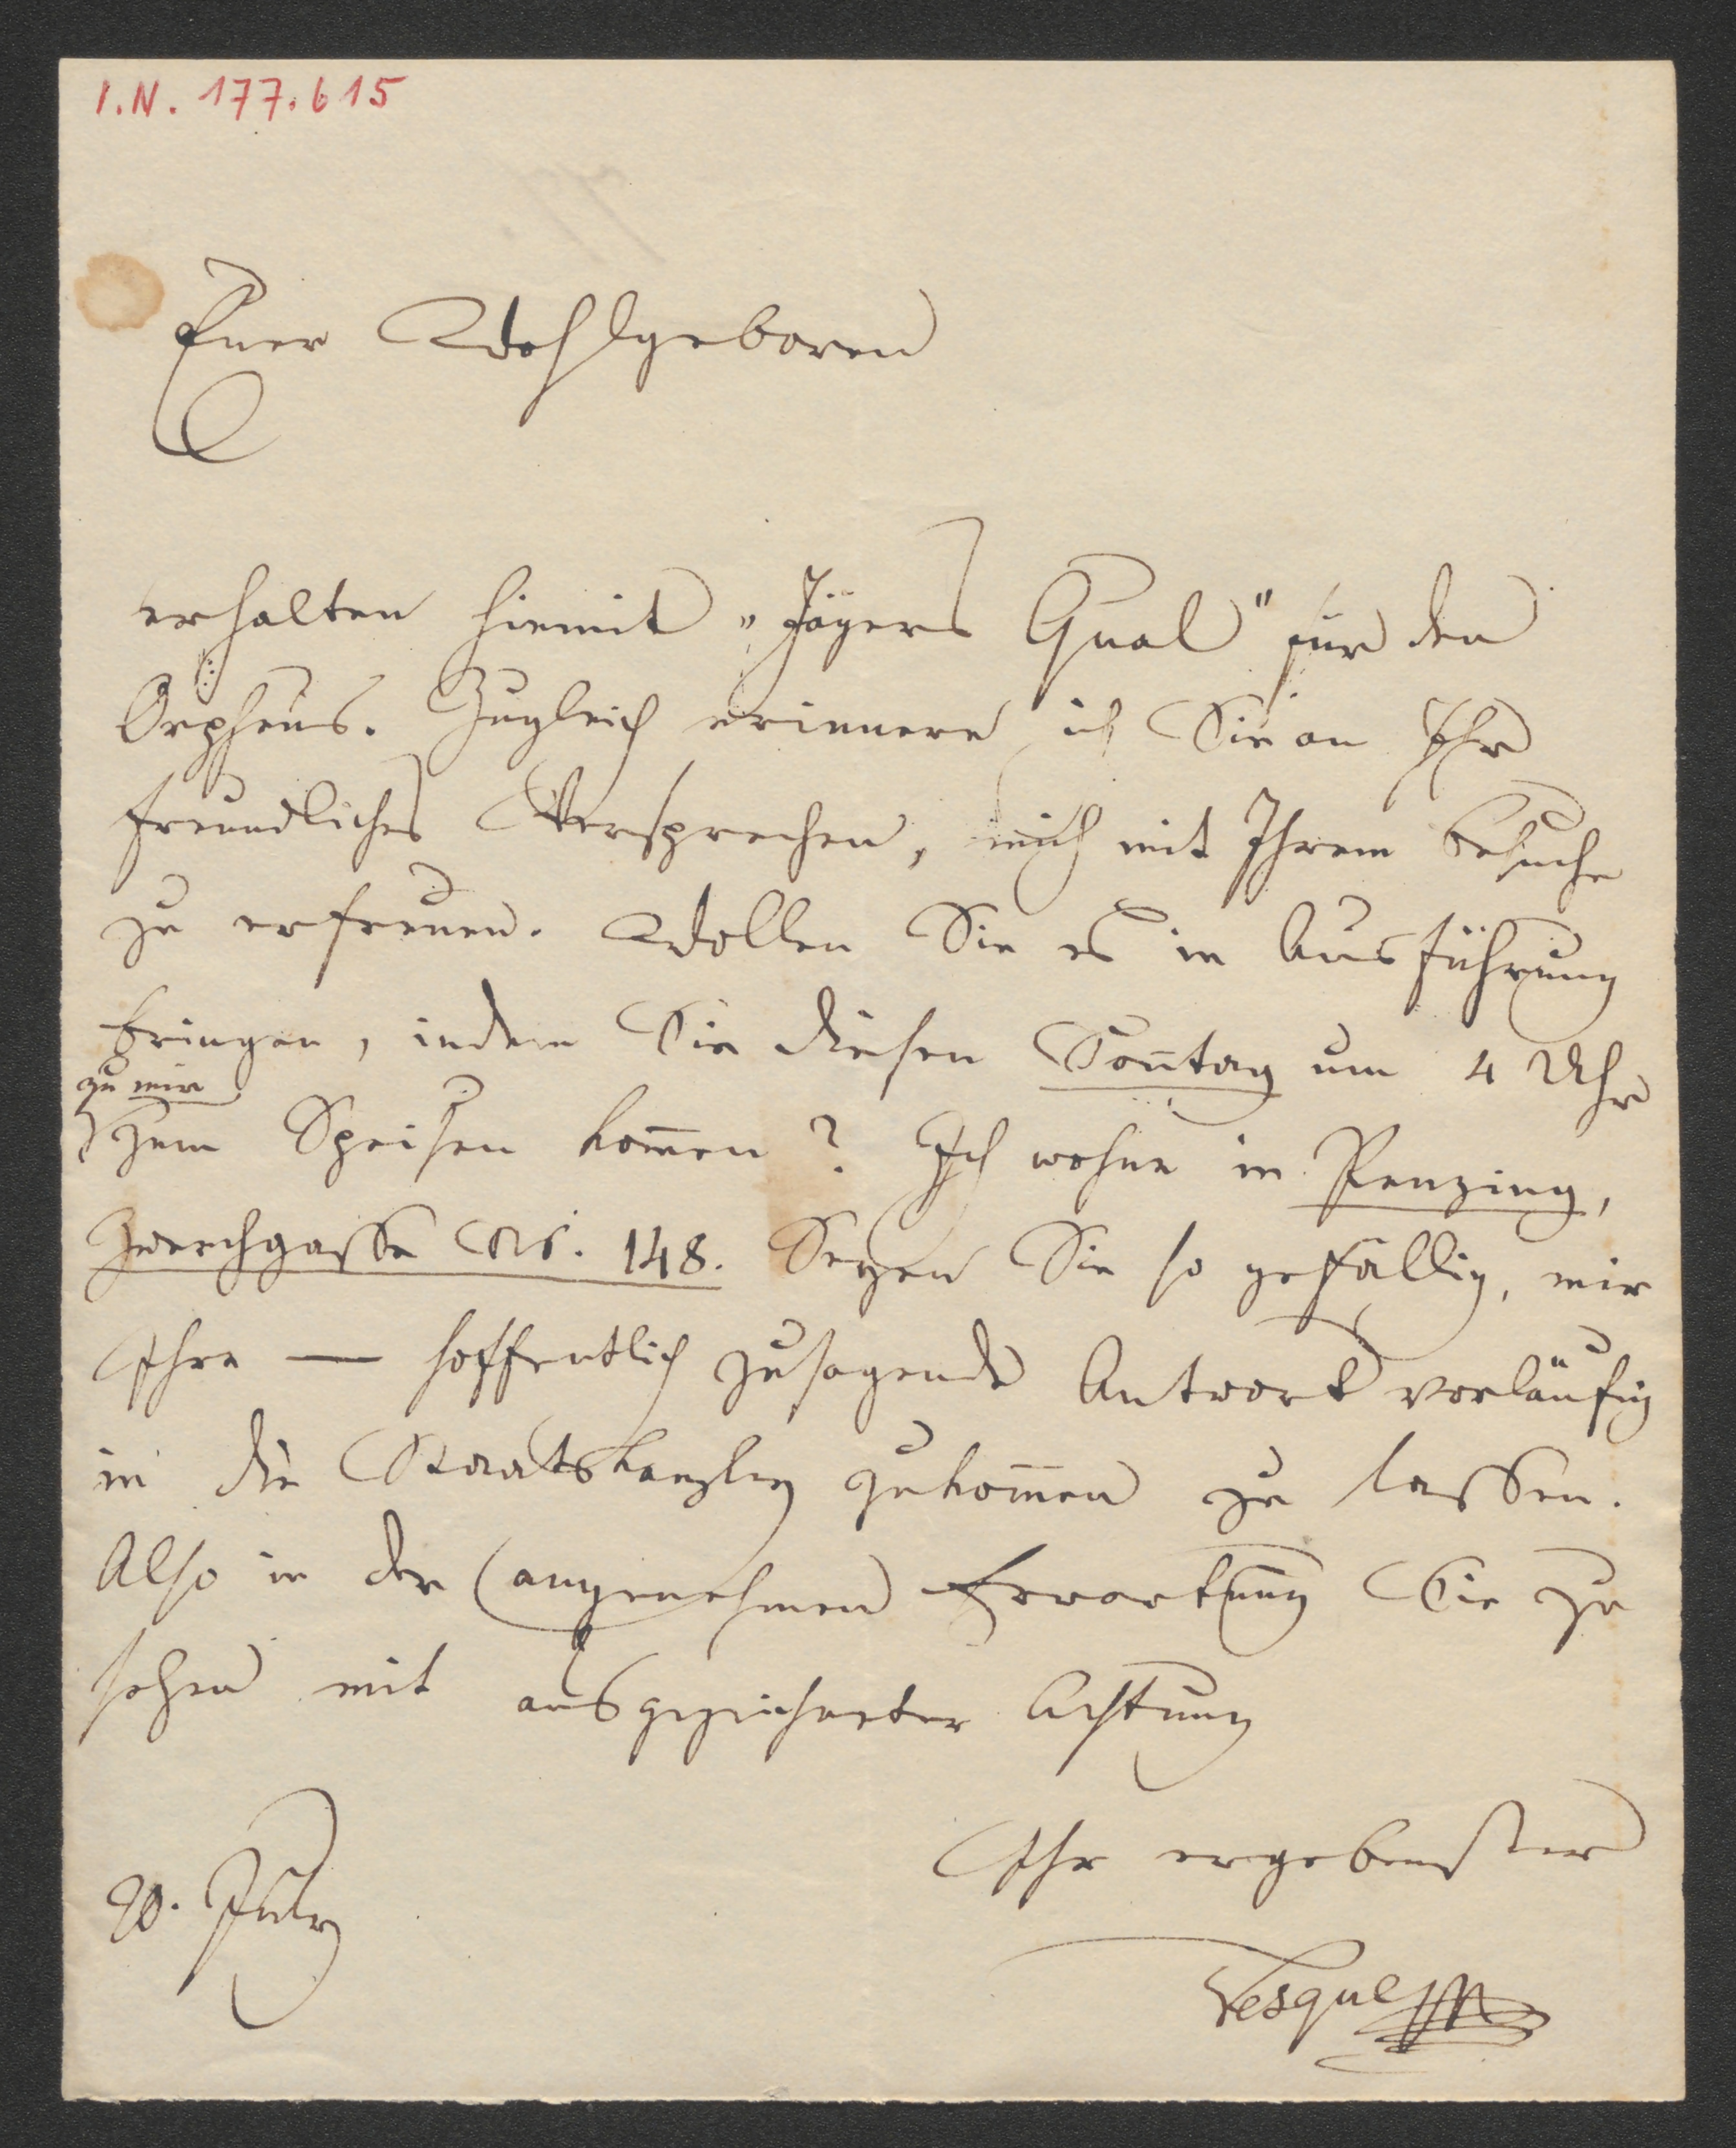 I.N. 177.615
Euer Wohlgeboren
erhalten hiemit „Jägers Qual" für den
Orpheus. Zugleich erinnere ich Sie an Ihr
freundliches Versprechen, mich mit Ihrem Besuche
zu erfreuen. Wollen Sie es in Ausführung
bringen, indem Sie diesen Son̄tag um 4 Uhr
zu mir
zum Speisen kom̄en? Ich wohne in Penzing,
Zwerchgasse No. 148. Seyen Sie so gefällig, mir
Ihre — hoffentlich zusagende Antwort vorläufig
in die Staatskanzley zukom̄en zu lassen.
Also in der angenehmen Erwartung Sie zu
sehen mit ausgezeichneter Achtung
Ihr ergebenster
20. July
Vesque